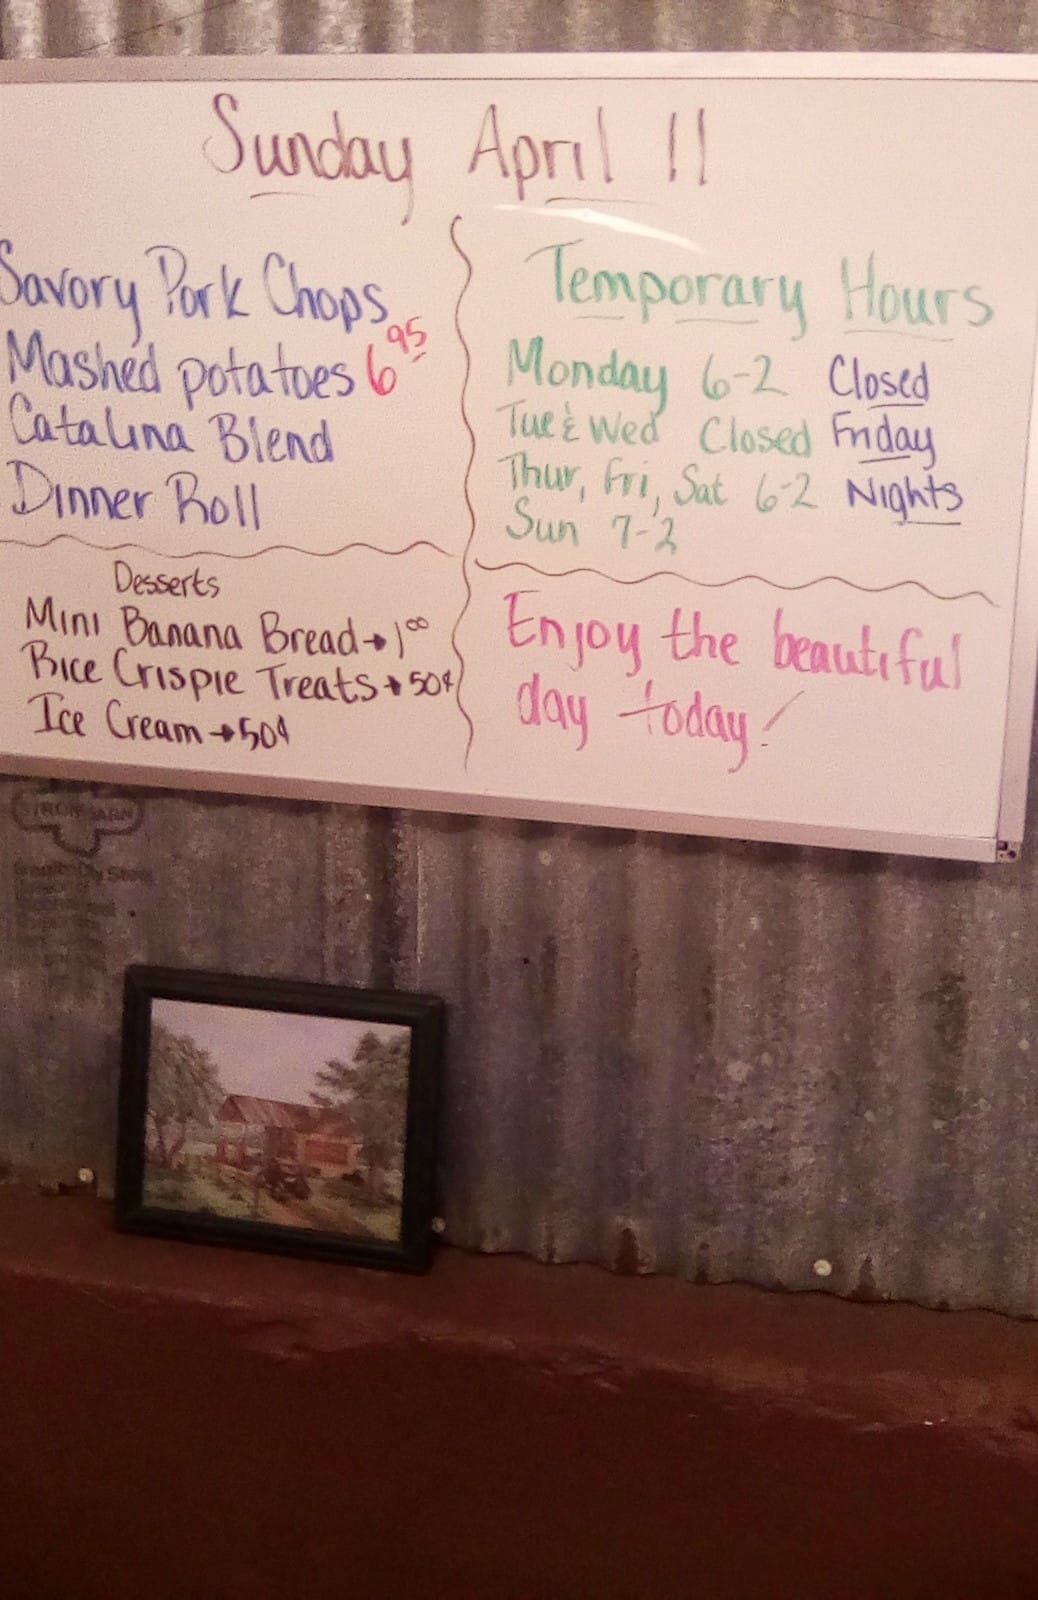 Sunday April 11
Savory Pork Chops
Mashed potatoes 6 95
Catalina Blend
Dinner Roll
Temporary Hours
Monday 6-2
Tue & Wed Closed
Thur, Fri, Sat 6-2
Sun 7-2
Closed
Friday
Nights
Desserts
Mini Banana Bread → 1 00
Rice Crispie Treats → 50¢
Ice Cream → 50¢
Enjoy the beautiful
day today!